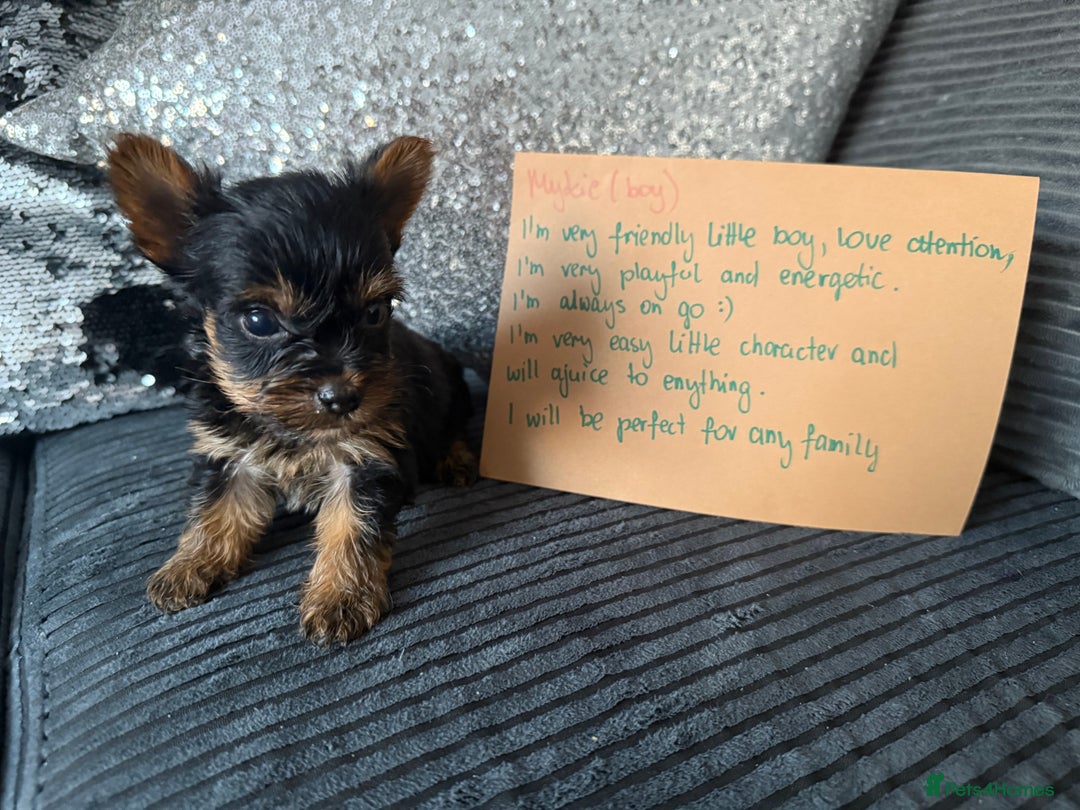 Mykie (boy)
I'm very friendly little boy, love attention,
I'm very playful and energetic.
I'm always on go :)
I'm very easy little character and
will ajuice to enything.
I will be perfect for any family
Pets4Homes